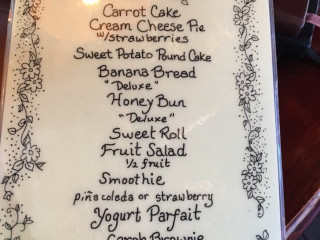 Carrot Cake
Cream Cheese Pie
w/strawberries
Sweet Potato Pound Cake
Banana Bread
"Deluxe"
Honey Bun
"Deluxe"
Sweet Roll
Fruit Salad
1/2 fruit
Smoothie
piña colada or strawberry
Yogurt Parfait
Carob Brownie